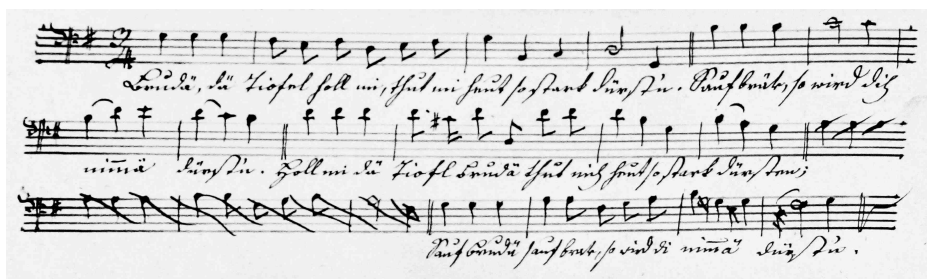 Brudä, dä Tiofel holl mi, thut mi heut so starck dürst'n. Sauf bräv, so wird dich
nimmä dürst'n. Holl mi dä Tiofl Brudä thut mich heut so starck dürsten;
Sauf Brudä sauf brav, so wird di nimmä dürst'n.